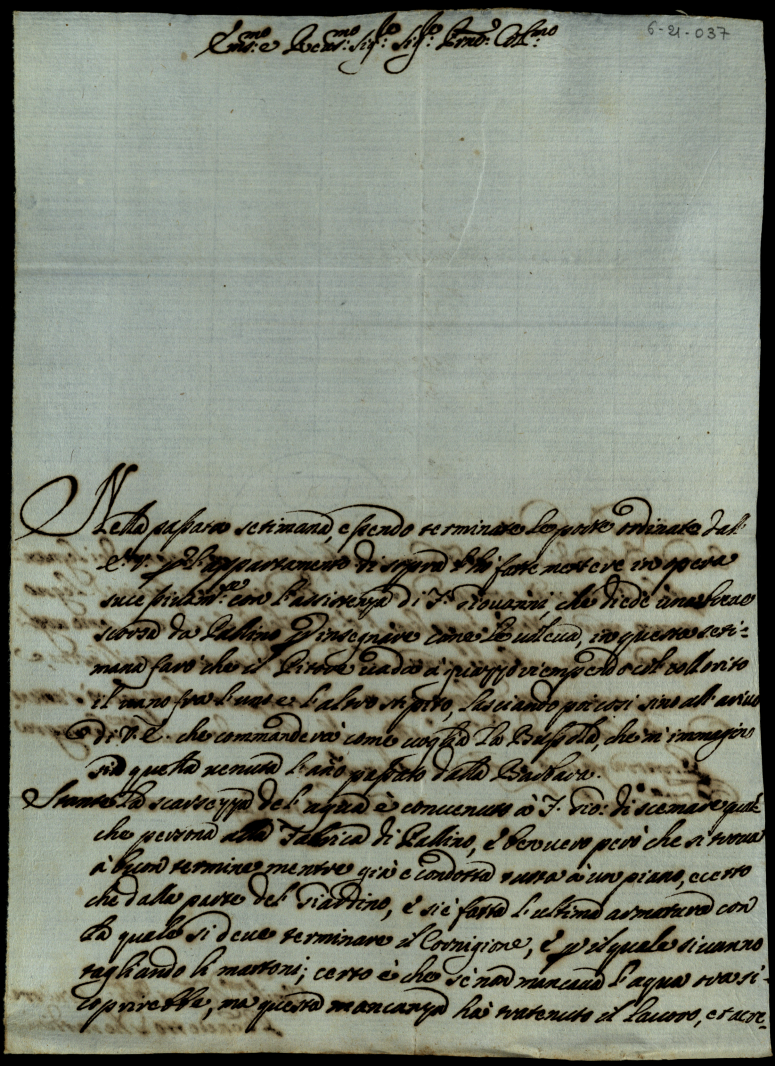 6-21-037
Em.mo e Reu.mo Sig.r Sig.r Pron.e Col.mo
Nella passata settimana, essendo terminate le porte ordinate dall
E. V. p l'appartamento di sopra l'hò fatte mettere in opera
sucessivam.te con l'assistenza di F. Giouanni, che diede una
scorsa da Pallino p insegnare come le uoleua, in questa seti-
mana farò che il Pittore uada à riempiendo col collorito
il uano fra l'uno e l'altro stipite, lasciando poi così sino all'ariuo
di V. E. che commanderà come uoglia la Bussola, che m'immagino
sia quella uenuta l'año passato dalla
Stante la scarsezza del'aqua è conuenuto à F. Gio: di scemare qual
che persona alla Fabrica di Pallino, è ben uero però che si troua
à buon termine mentre già è condotta tutta à un piano, eccetto
che dalla parte del Giardino, è si è fatta l'ultima armatura con
la quale si deue terminare il Cornigione, è p il quale si uanno
tagliando li mattoni; certo è che se non mancaua l'aqua ora si
coprirebbe, ma questa mancanza hà tratenuto il lauoro, et acre-